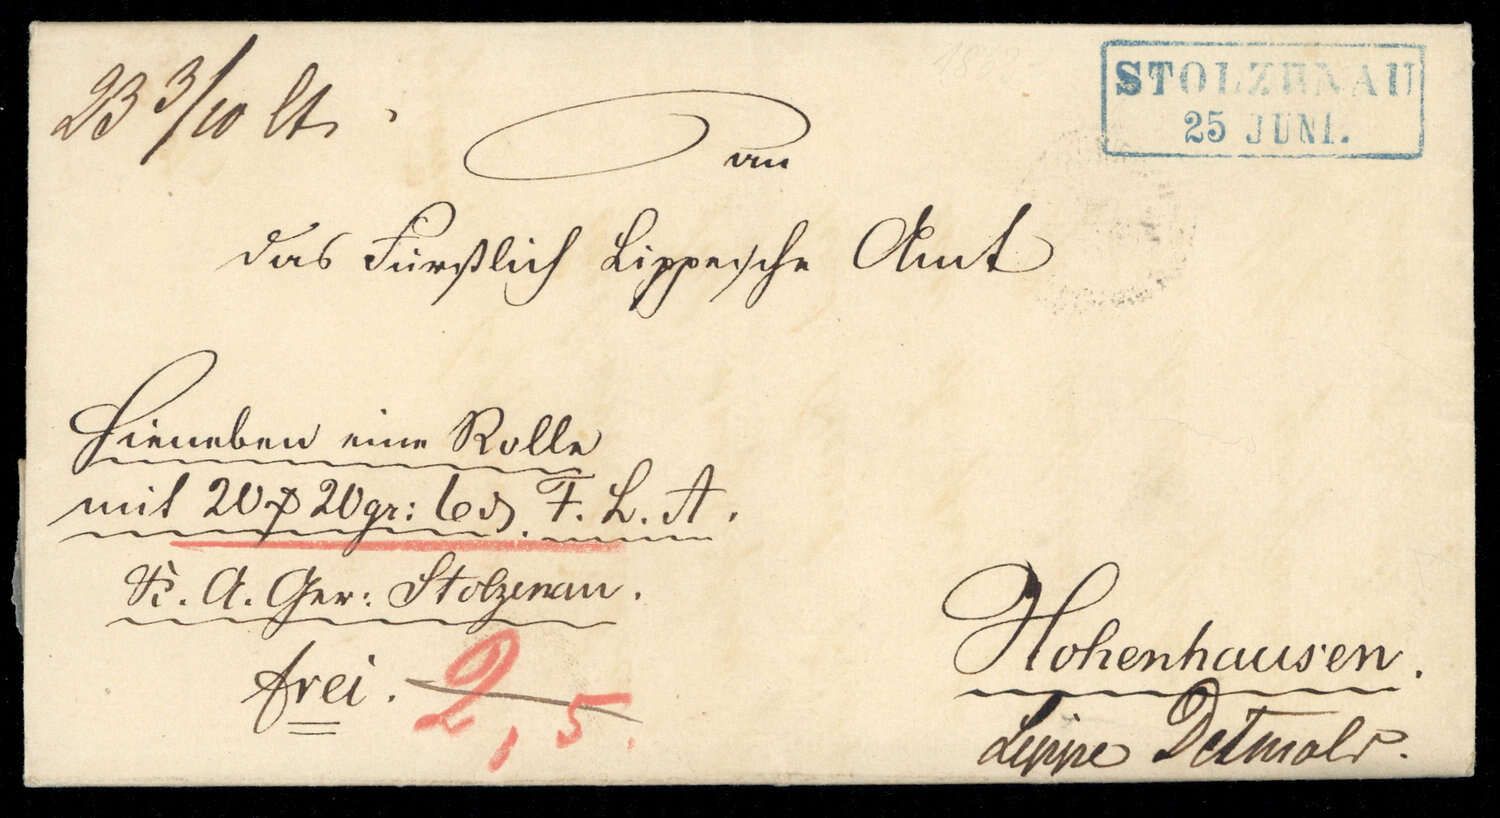 23 3/10 lt.
STOLZENAU
25 JUNI.
An
das Fürstlich Lippesche Amt
Hieneben eine Rolle
mit 20 20gr: 6 F. L. A.
K. A. Ger: Stolzenau.
frei.
2, 5.
Hohenhausen.
Lippe Detmold.